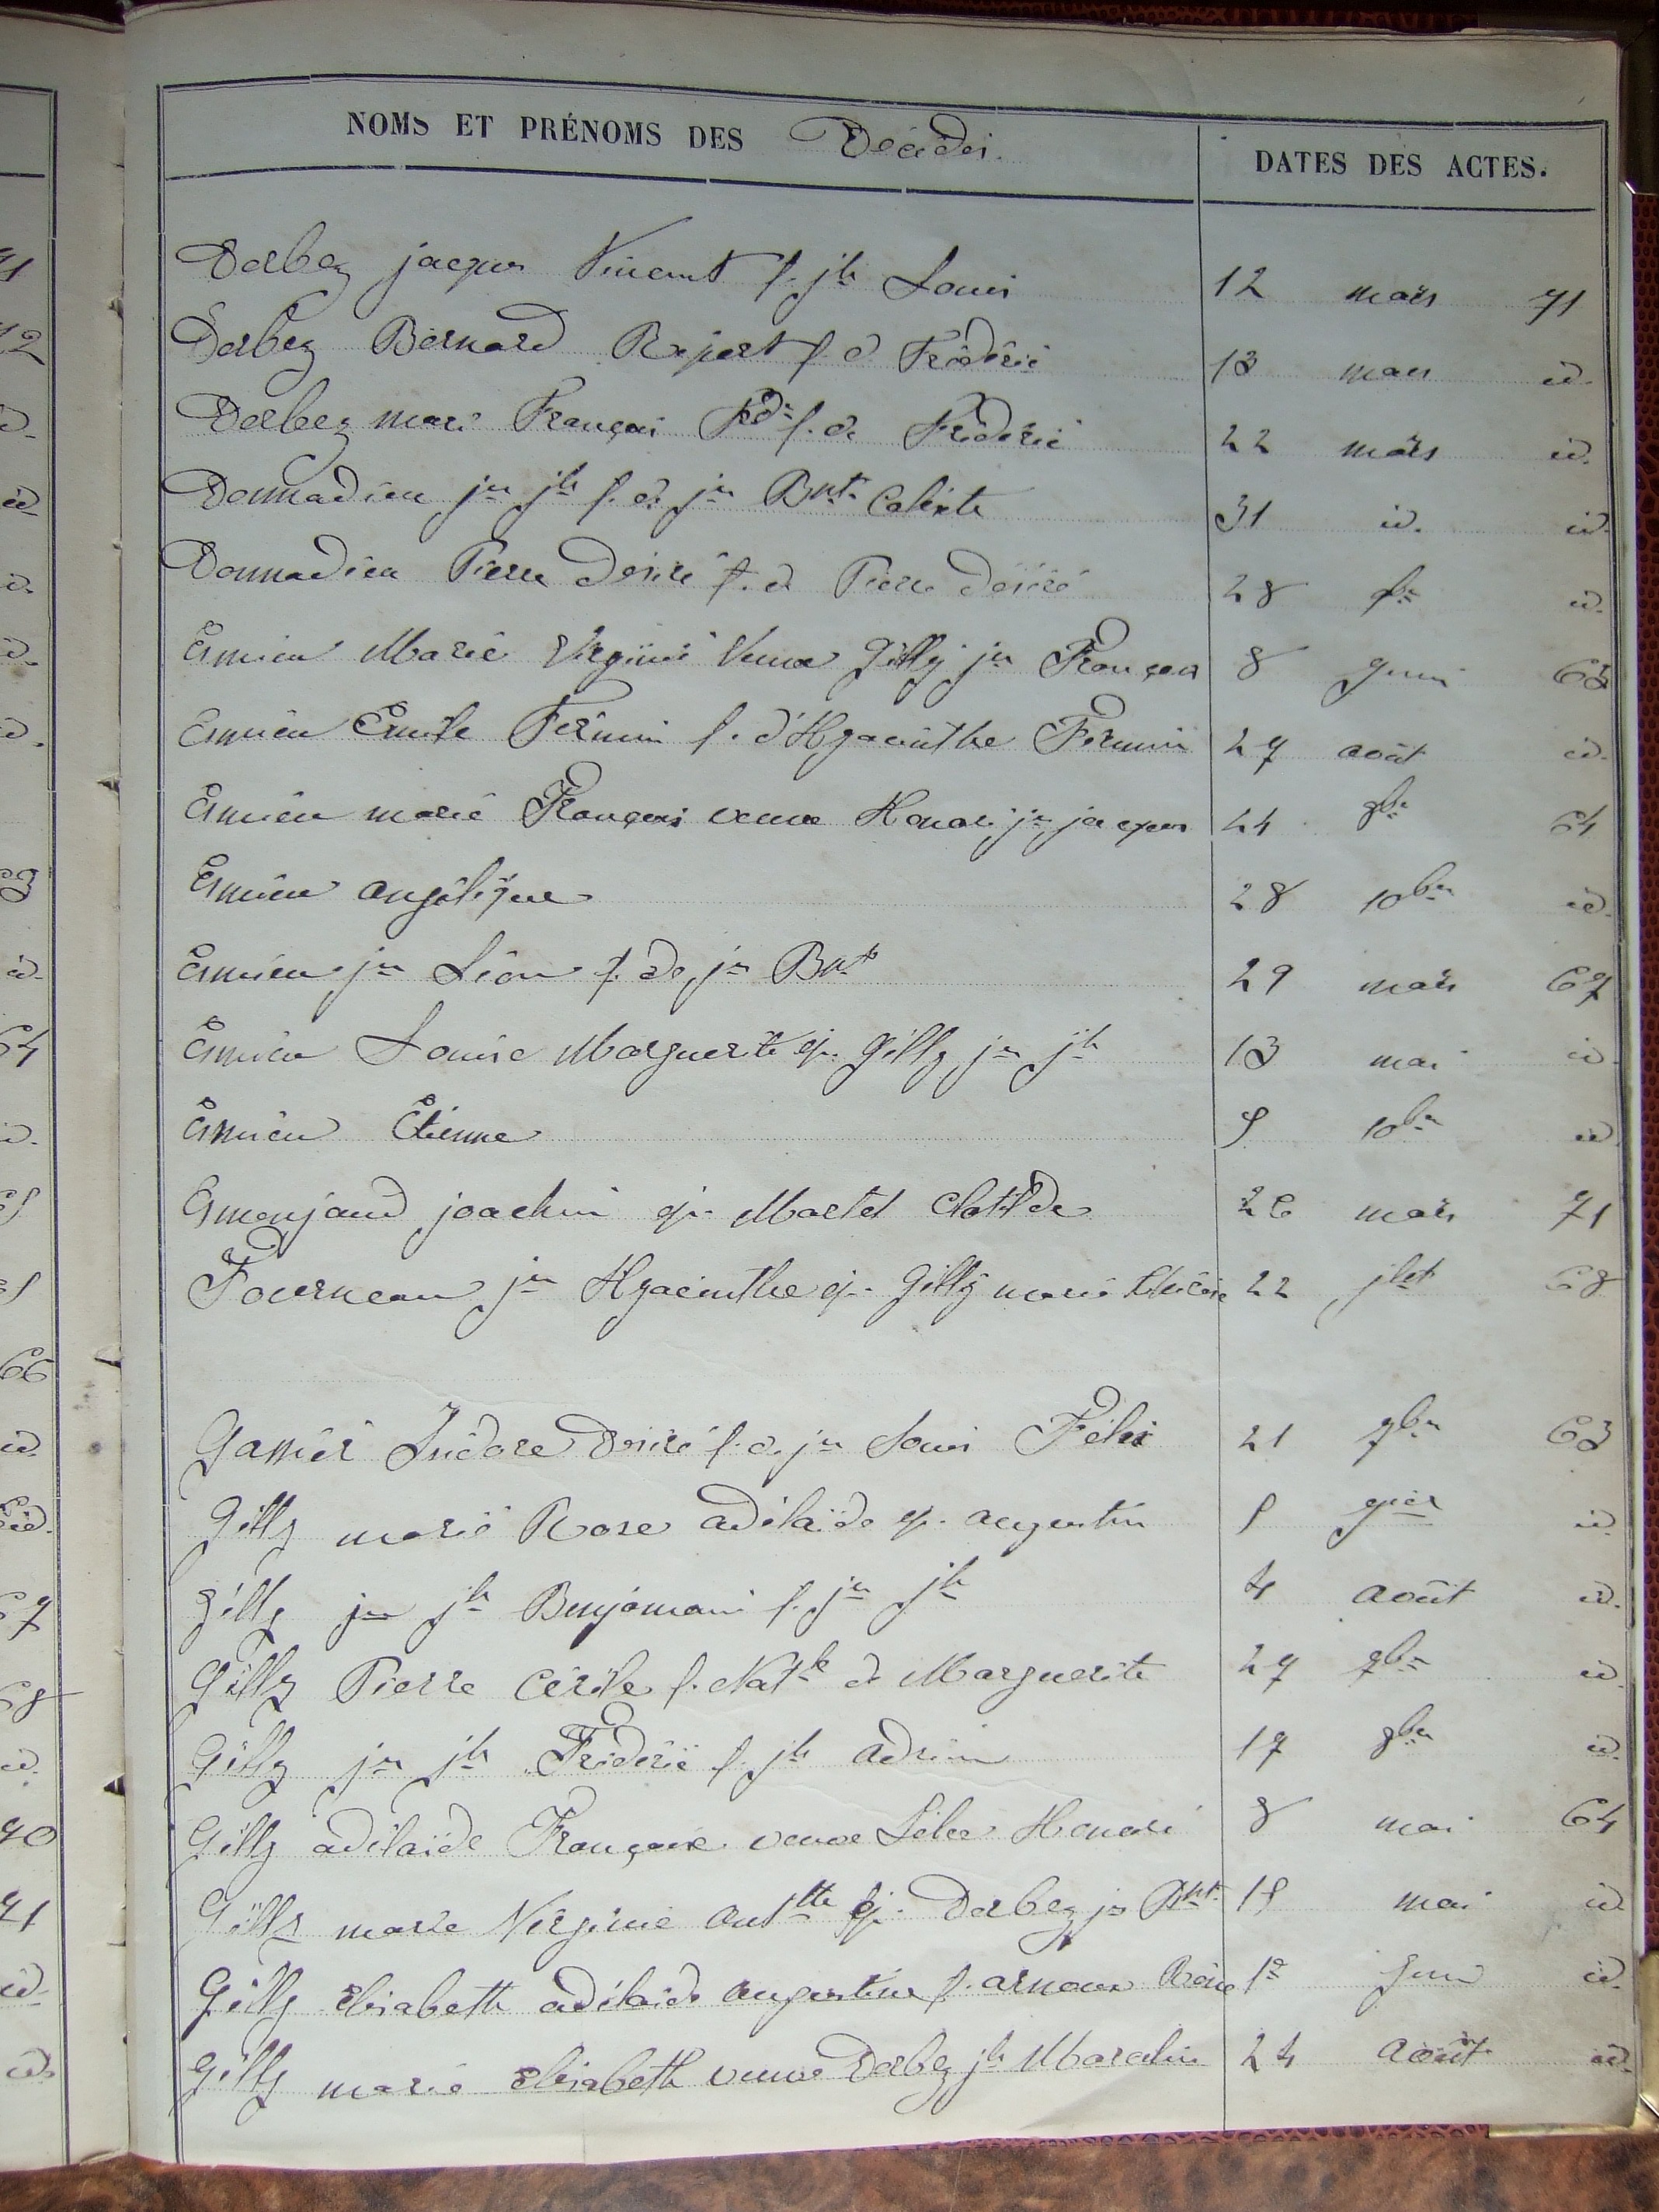 NOMS ET PRÉNOMS DES Décédés. DATES DES ACTES.
Derbez jacques Vincent f. jh Louis 12 mars 71
Derbez Bernard f. d Fréderic 13 mars id.
Derbez marie François f. de Fréderic 22 mars id.
Donnadieu jn jh f. de jn Bnt Calixte 31 id. id.
Donnadieu Pierre Désiré f. d Pierre Désiré 28 id.
Ermieu Marie Virginie Veuve Gilly jn François 8 juin 63
Ermieu Emile Firmin f. d'Hyacinthe Firmin 27 août id.
Ermieu marie François veuve Honoré jn jacques 24 8bre 64
Ermieu angélique 28 10bre id.
Ermieu jn Léon f. de jn Bnt 29 mars 67
Ermieu Louise Marguerite ep. Gilly jn jh 13 mai id.
Ermieu Etienne 5 10bre id.
joachim ep. Martel Clotilde 26 mars 71
Fourneau jn Hyacinthe ep. Gilly marie 22 jlet 68
Garnier Isidore Désiré f. de jn Louis Félix 21 7bre 63
Gilly marie Rose adélaïde ep. augustin 5 id.
Gilly jn jh Benjamin f. jn jh 4 août id.
Gilly Pierre Cérile f. Natle de Marguerite 27 7bre id.
Gilly jn jh Fréderic f. jh adrien 17 8bre id.
Gilly adélaïde Françoise veuve Honoré 8 mai 64
Gilly marie Virginie anttte ep. Derbez jn Bnt 15 mai id.
Gilly Elisabeth adélaïde augustine f. arnoux 1er juin id.
Gilly marie Elisabeth veuve Derbez jh Marcelin 24 août id.